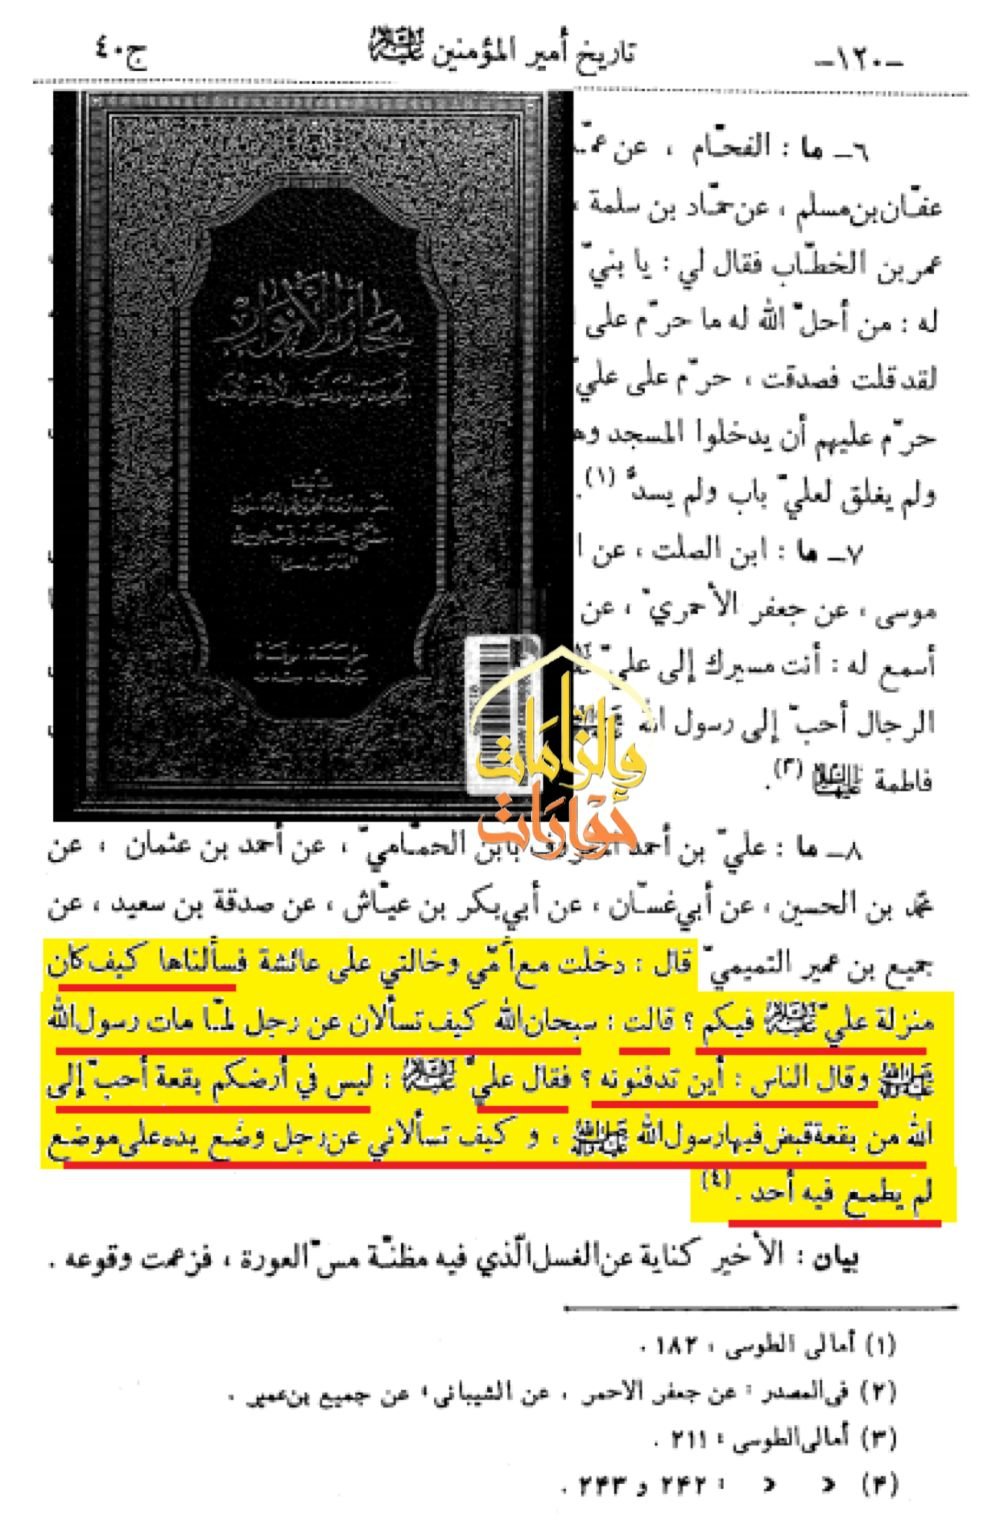 -١٢٠- تاريخ أمير المؤمنين عليه السلام ج٤٠
٦ــ ما : الفحّام ، عن عمّـ
عفّان بن مسلم ، عن حمّاد بن سلمة ،
عمر بن الخطّاب فقال لي : يا بنيّ
له : من أحلّ الله له ما حرّم على
لقد قلت فصدقت ، حرّم على عليّ
حرّم عليهم أن يدخلوا المسجد
ولم يغلق لعليّ باب ولم يسدّ (١).
٧ــ ما : ابن الصلت ، عن
موسى ، عن جعفر الأحمريّ ، عن
أسمع له : أنت مسيرك إلى عليّ
الرجال أحبّ إلى رسول الله
فاطمة عليها السلام (٣).
بحار الأنوار
وإلزامات
حوارات
٨ــ ما : عليّ بن أحمد المعروف بابن الحمّاميّ ، عن أحمد بن عثمان ، عن
محمد بن الحسين ، عن أبي غسّان ، عن أبي بكر بن عيّاش ، عن صدقة بن سعيد ، عن
جميع بن عمير التميميّ قال : دخلت مع أمّي وخالتي على عائشة فسألناها كيف كان
منزلة عليّ عليه السلام فيكم ؟ قالت : سبحان الله كيف تسألان عن رجل لمّا مات رسول الله
صلى الله عليه وآله وقال الناس : أين تدفنونه ؟ فقال عليّ عليه السلام : ليس في أرضكم بقعة أحبّ إلى
الله من بقعة قبض فيها رسول الله صلى الله عليه وآله ، و كيف تسألاني عن رجل وضع يده على موضع
لم يطمع فيه أحد .(٤)
بيان : الأخير كناية عن الغسل الّذي فيه مظنّة مسّ العورة ، فزعمت وقوعه .
(١) أمالى الطوسى ، ١٨٢ .
(٢) فى المصدر : عن جعفر الاحمر ، عن الشيبانى، عن جميع بن عمير .
(٣) أمالى الطوسى : ٢١١ .
(۴) » » : ٢۴٢ و ٢۴٣ .